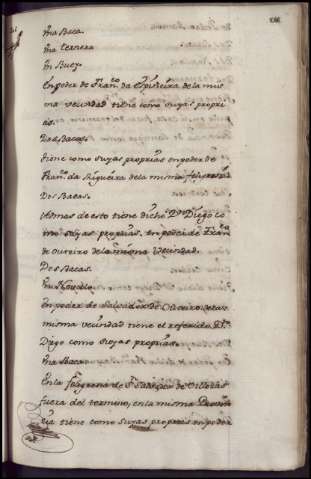 Una Baca.
Una Ternera
Un Buey.
En poder de Fran.co da Espiñeira de la mis
ma vecindad tiene como suyas propri
as.
Dos Bacas.
Tiene como suyas proprias en poder de
Fran.co da Rigueira de la misma feligresia
Dos Bacas.
Ademas de esto tiene dicho Dn Diego co
mo suyas proprias, en poder de Fran.co
de Oureiro de la misma vecindad.
Dos Bacas.
Un Novillo.
En poder de Salvador de Oliveiro de la
misma vecindad tiene el referido Dn
Diego como suyas proprias.
Una Baca.
En la feligresia de Sn Salvador de
fuera del termino, en la misma Provin
cia tiene como suyas proprias en poder